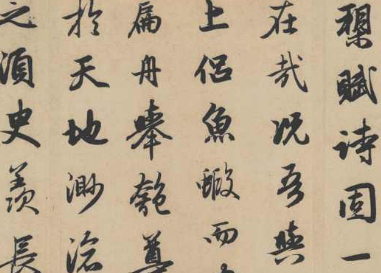 槊賦詩固一
在哉况吾與
上侣魚蝦而
扁舟舉匏尊
於天地渺滄
之須臾羨長